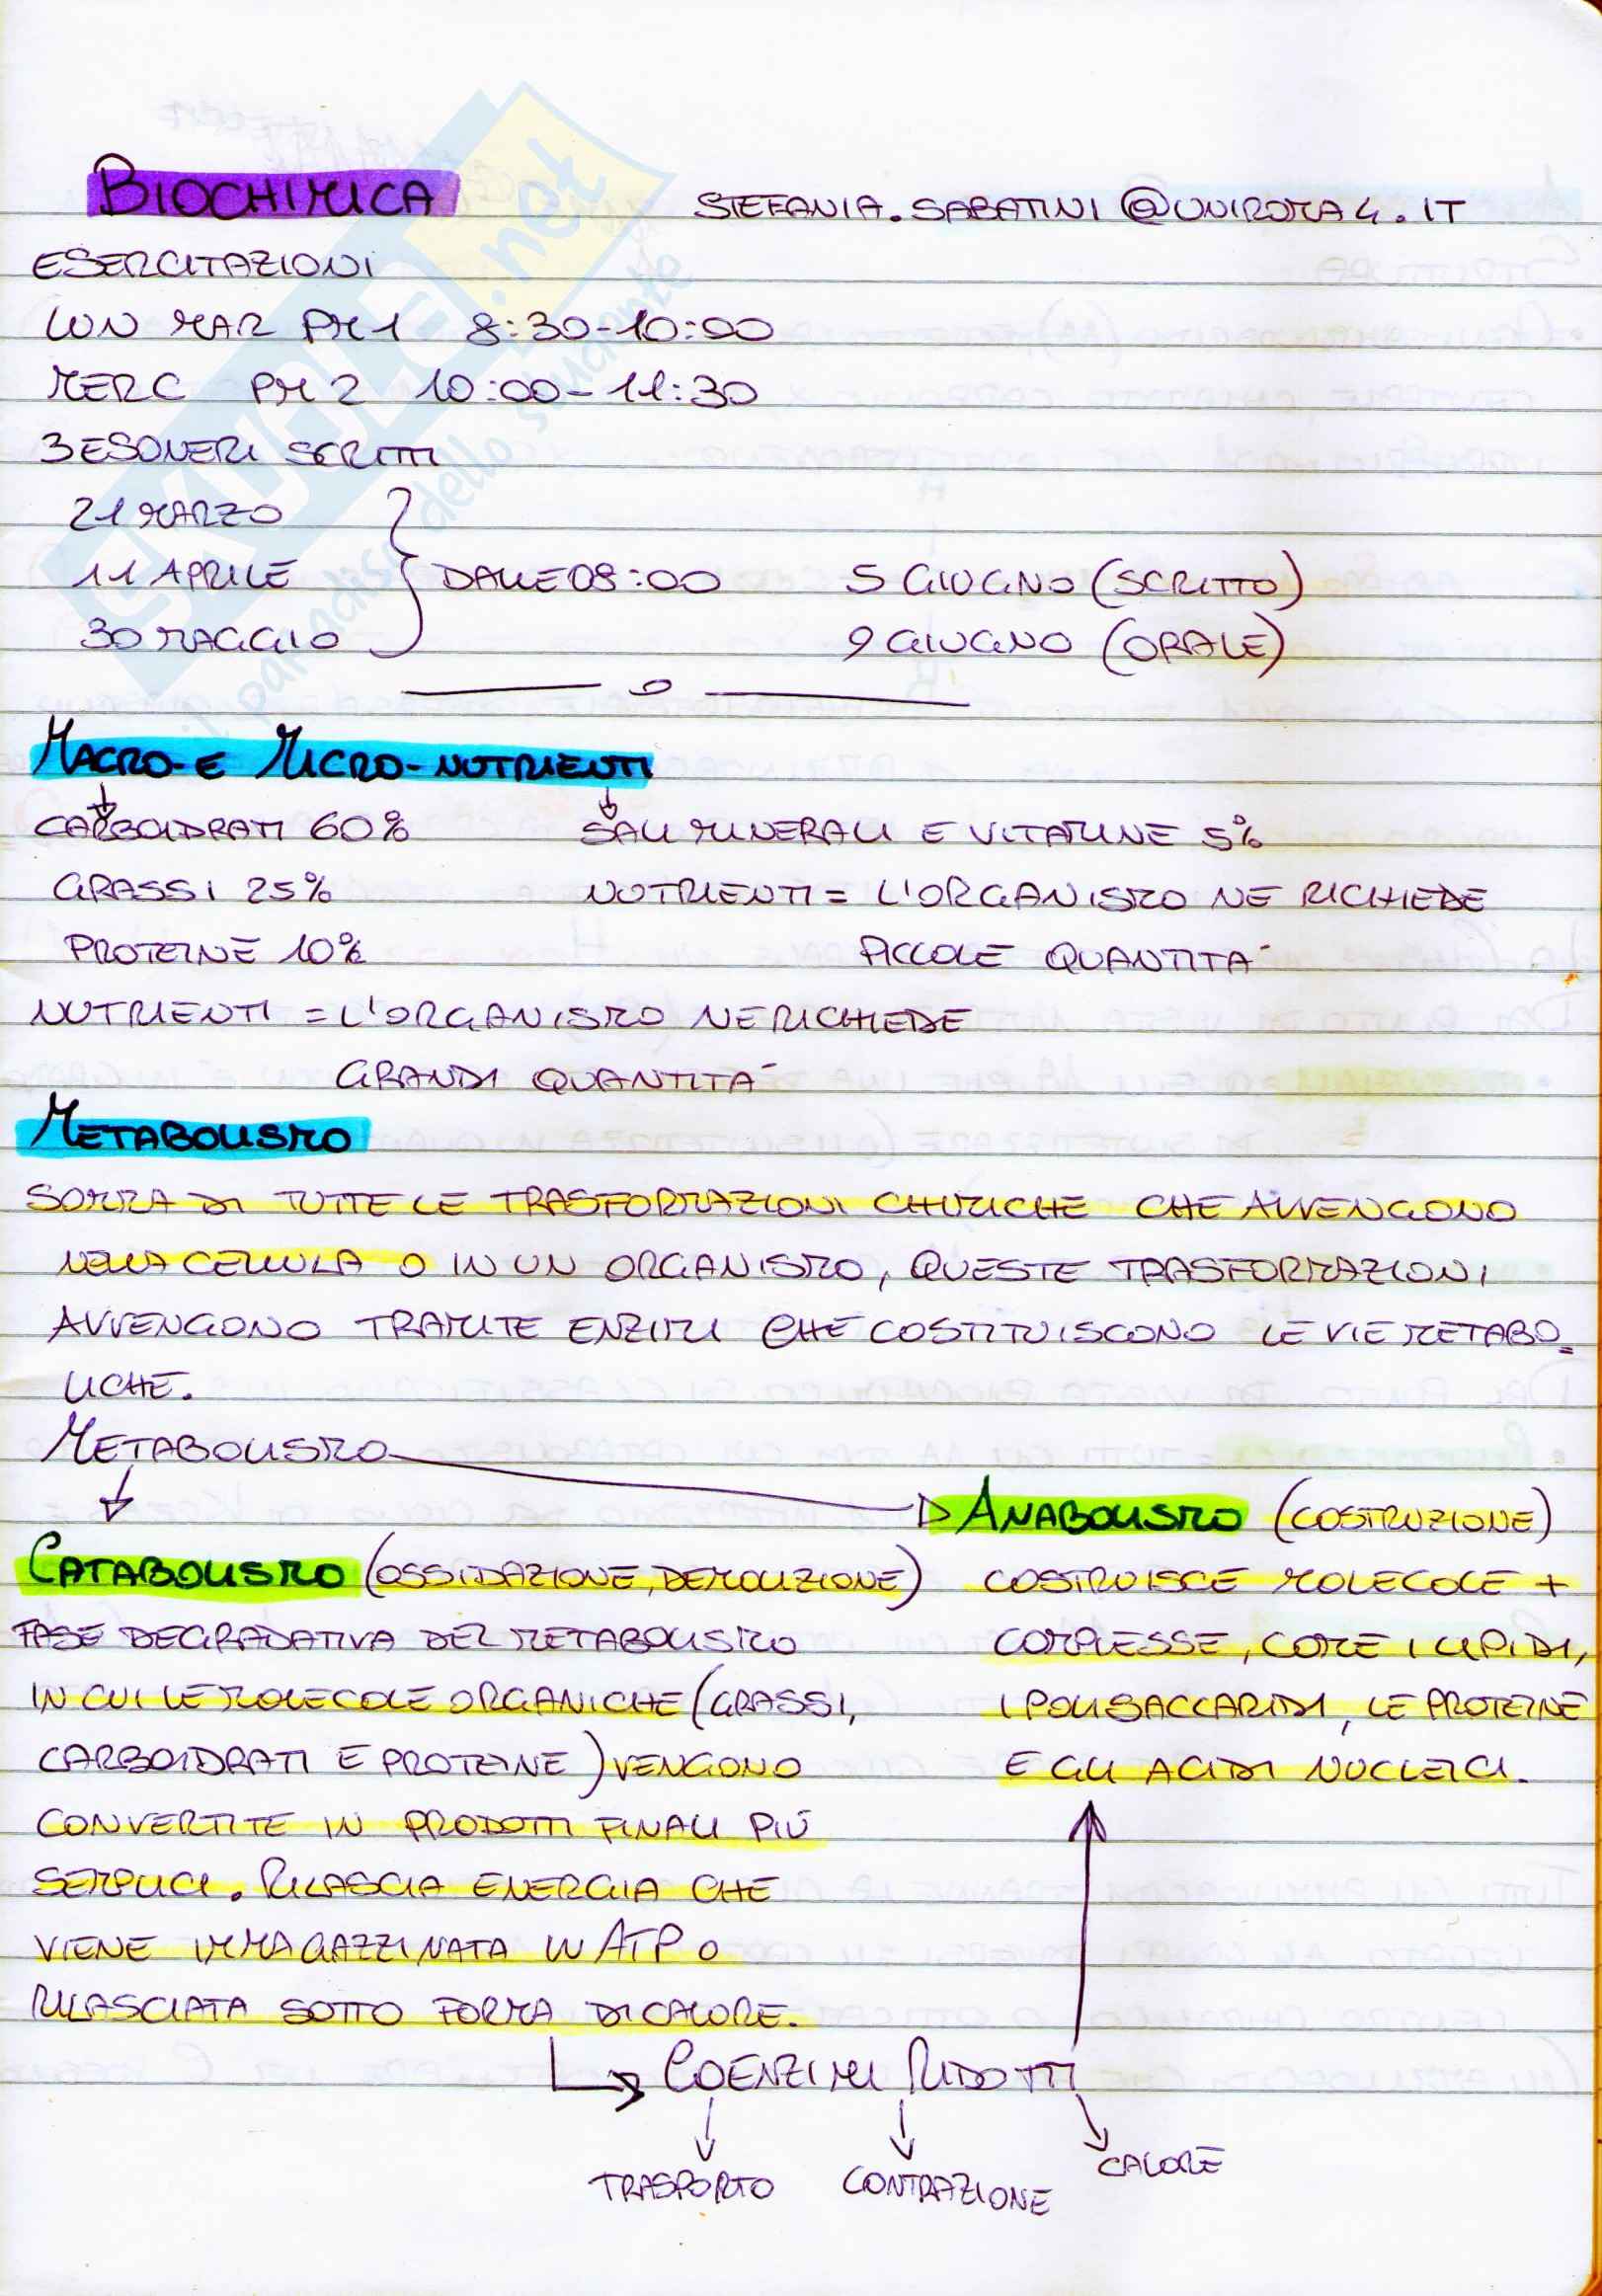 BIOCHIMICA STEFANIA.SABATINI@UNIROMA4.IT
ESERCITAZIONI
LUN MAR PM1 8:30-10:00
MERC PM2 10:00-11:30
3 ESONERI SCRITTI
21 MARZO
11 APRILE DALLE 08:00 5 GIUGNO (SCRITTO)
30 MAGGIO 9 GIUGNO (ORALE)
MACRO- E MICRO-NUTRIENTI
CARBOIDRATI 60% SALI MINERALI E VITAMINE 5%
GRASSI 25% NUTRIENTI = L'ORGANISMO NE RICHIEDE
PROTEINE 10% PICCOLE QUANTITA'
NUTRIENTI = L'ORGANISMO NE RICHIEDE
GRANDI QUANTITA'
METABOLISMO
SOMMA DI TUTTE LE TRASFORMAZIONI CHIMICHE CHE AVVENGONO
NELLA CELLULA O IN UN ORGANISMO, QUESTE TRASFORMAZIONI
AVVENGONO TRAMITE ENZIMI CHE COSTITUISCONO LE VIE METABO=
LICHE.
METABOLISMO
ANABOLISMO (COSTRUZIONE)
CATABOLISMO (OSSIDAZIONE, DEMOLIZIONE) COSTRUISCE MOLECOLE +
FASE DEGRADATIVA DEL METABOLISMO COMPLESSE, COME I LIPIDI,
IN CUI LE MOLECOLE ORGANICHE (GRASSI, I POLISACCARIDI, LE PROTEINE
CARBOIDRATI E PROTEINE) VENGONO E GLI ACIDI NUCLEICI.
CONVERTITE IN PRODOTTI FINALI PIÙ
SEMPLICI. RILASCIA ENERGIA CHE
VIENE IMMAGAZZINATA IN ATP O
RILASCIATA SOTTO FORMA DI CALORE.
COENZIMI RIDOTTI
TRASPORTO CONTRAZIONE CALORE
SKUOLA.net
il paradiso dello studente